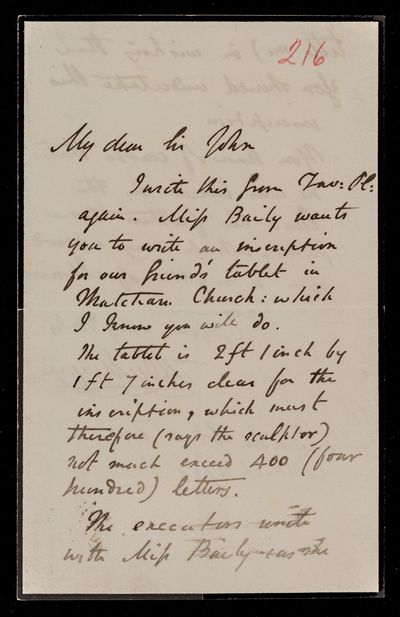 216
My dear Sir John
I write this from Tav: Pl:
again. Miss Baily wants
you to write an inscription
for our friend's tablet in
Church: which
I know you will do.
The tablet is 2ft 1 inch by
1 ft 7 inches clear for the
inscription, which must
therefore (says the sculptor)
not much exceed 400 (four
hundred) letters.
The executors unite
with Miss Baily